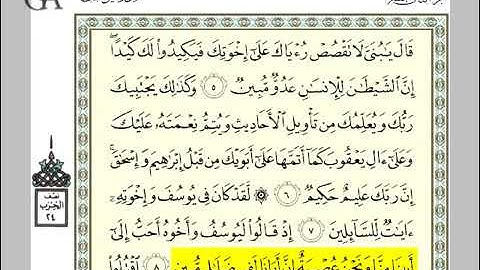 قَالَ يَٰبُنَىَّ لَا تَقْصُصْ رُءْيَاكَ عَلَىٰٓ إِخْوَتِكَ فَيَكِيدُوا۟ لَكَ كَيْدًا ۖ
إِنَّ ٱلشَّيْطَٰنَ لِلْإِنسَٰنِ عَدُوٌّ مُّبِينٌ ٥ وَكَذَٰلِكَ يَجْتَبِيكَ
رَبُّكَ وَيُعَلِّمُكَ مِن تَأْوِيلِ ٱلْأَحَادِيثِ وَيُتِمُّ نِعْمَتَهُۥ عَلَيْكَ
وَعَلَىٰٓ ءَالِ يَعْقُوبَ كَمَآ أَتَمَّهَا عَلَىٰٓ أَبَوَيْكَ مِن قَبْلُ إِبْرَٰهِيمَ وَإِسْحَٰقَ ۚ
إِنَّ رَبَّكَ عَلِيمٌ حَكِيمٌ ٦ ۞ لَّقَدْ كَانَ فِى يُوسُفَ وَإِخْوَتِهِۦٓ
ءَايَٰتٌ لِّلسَّآئِلِينَ ٧ إِذْ قَالُوا۟ لَيُوسُفُ وَأَخُوهُ أَحَبُّ إِلَىٰٓ
أَبِينَا مِنَّا وَنَحْنُ عُصْبَةٌ إِنَّ أَبَانَا لَفِى ضَلَٰلٍ مُّبِينٍ ٨ ٱقْتُلُوا۟
نصف
الحزب
٢٤